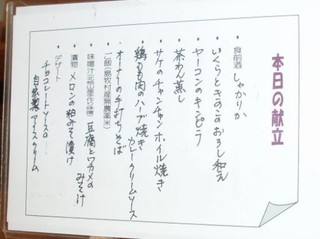 本日の献立
・食前酒 しゃりか
・いくらときのこのおろし和え
・ヤーコンのキンピラ
・茶わん蒸し
・サケのチャンチャンホイル焼き
・鶏もも肉のハーブ焼き カレークリームソース
・オーナーの手打ちそば
・ご飯(島牧村産無農薬米)
・味噌汁 豆腐とワカメのみそ汁
・漬物 メロンの粕みそ漬け
・デザート
チョコレートソースの
自家製アイスクリーム